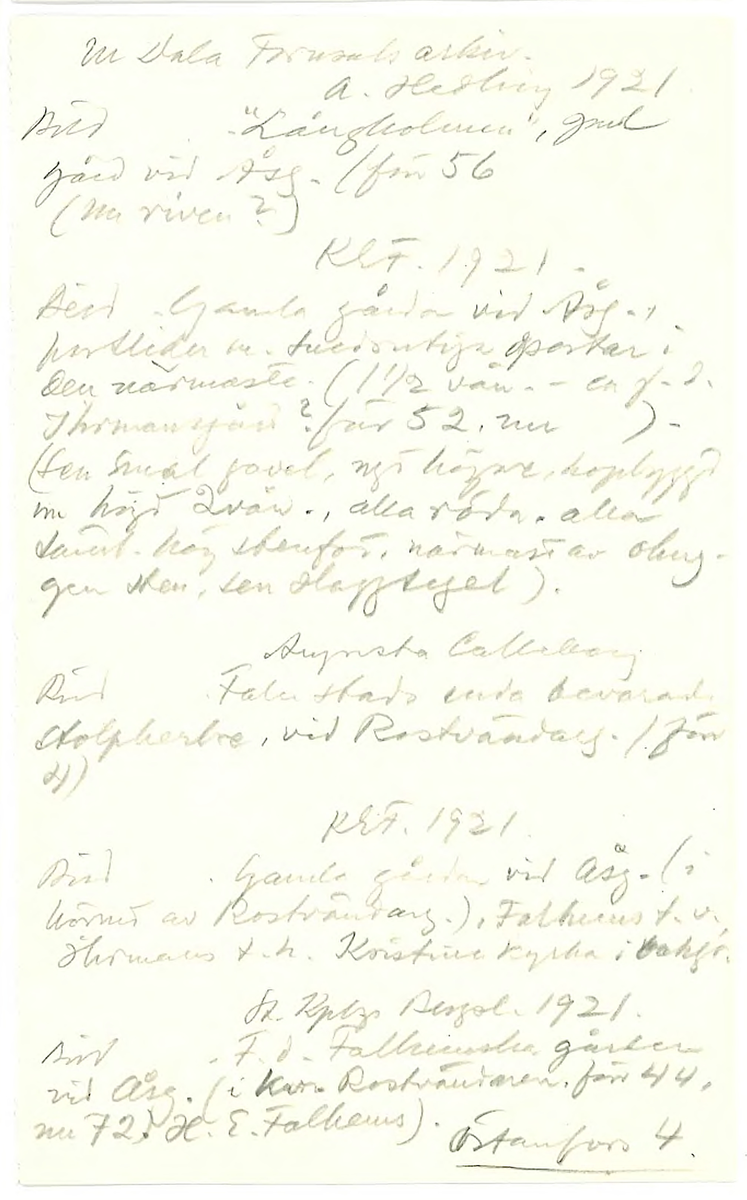 ur Dala Fornsals arkiv.
A. Hedling 1921.
Bild "Långholmen", gml
gård vid Åsg. (förr 56
(nu riven?)
KEF. 1921.
Bild Gamla gårdar vid Åsg.,
portlider m. snedrutiga portar i
den närmaste. (1 1/2 vån. - en f.d.
Ihrmansgård? förr 52, nu ) -
(Sen smal gavel, ngt högre, hopbyggd
m högt 2 vån., alla röda. alla
samt. hög stenfot, närmast av ohug-
gen sten, sen slaggtegel).
Augusta
Bild Falu stads enda bevarade
stolpherbre, vid Rostvändarg. (förr
4)
KEF. 1921.
Bild Gamla gårdar vid Åsg. (i
hörnet av Rostvändarg.), Falhems t.v.
Ihrmans t.h. Kristine kyrka i bakgr.
1921.
Bild F.d. Falhemska gården
vid Åsg. (i kv. Rostvändaren. förr 44,
nu 72) H. E. Falhems).
Östanfors 4.